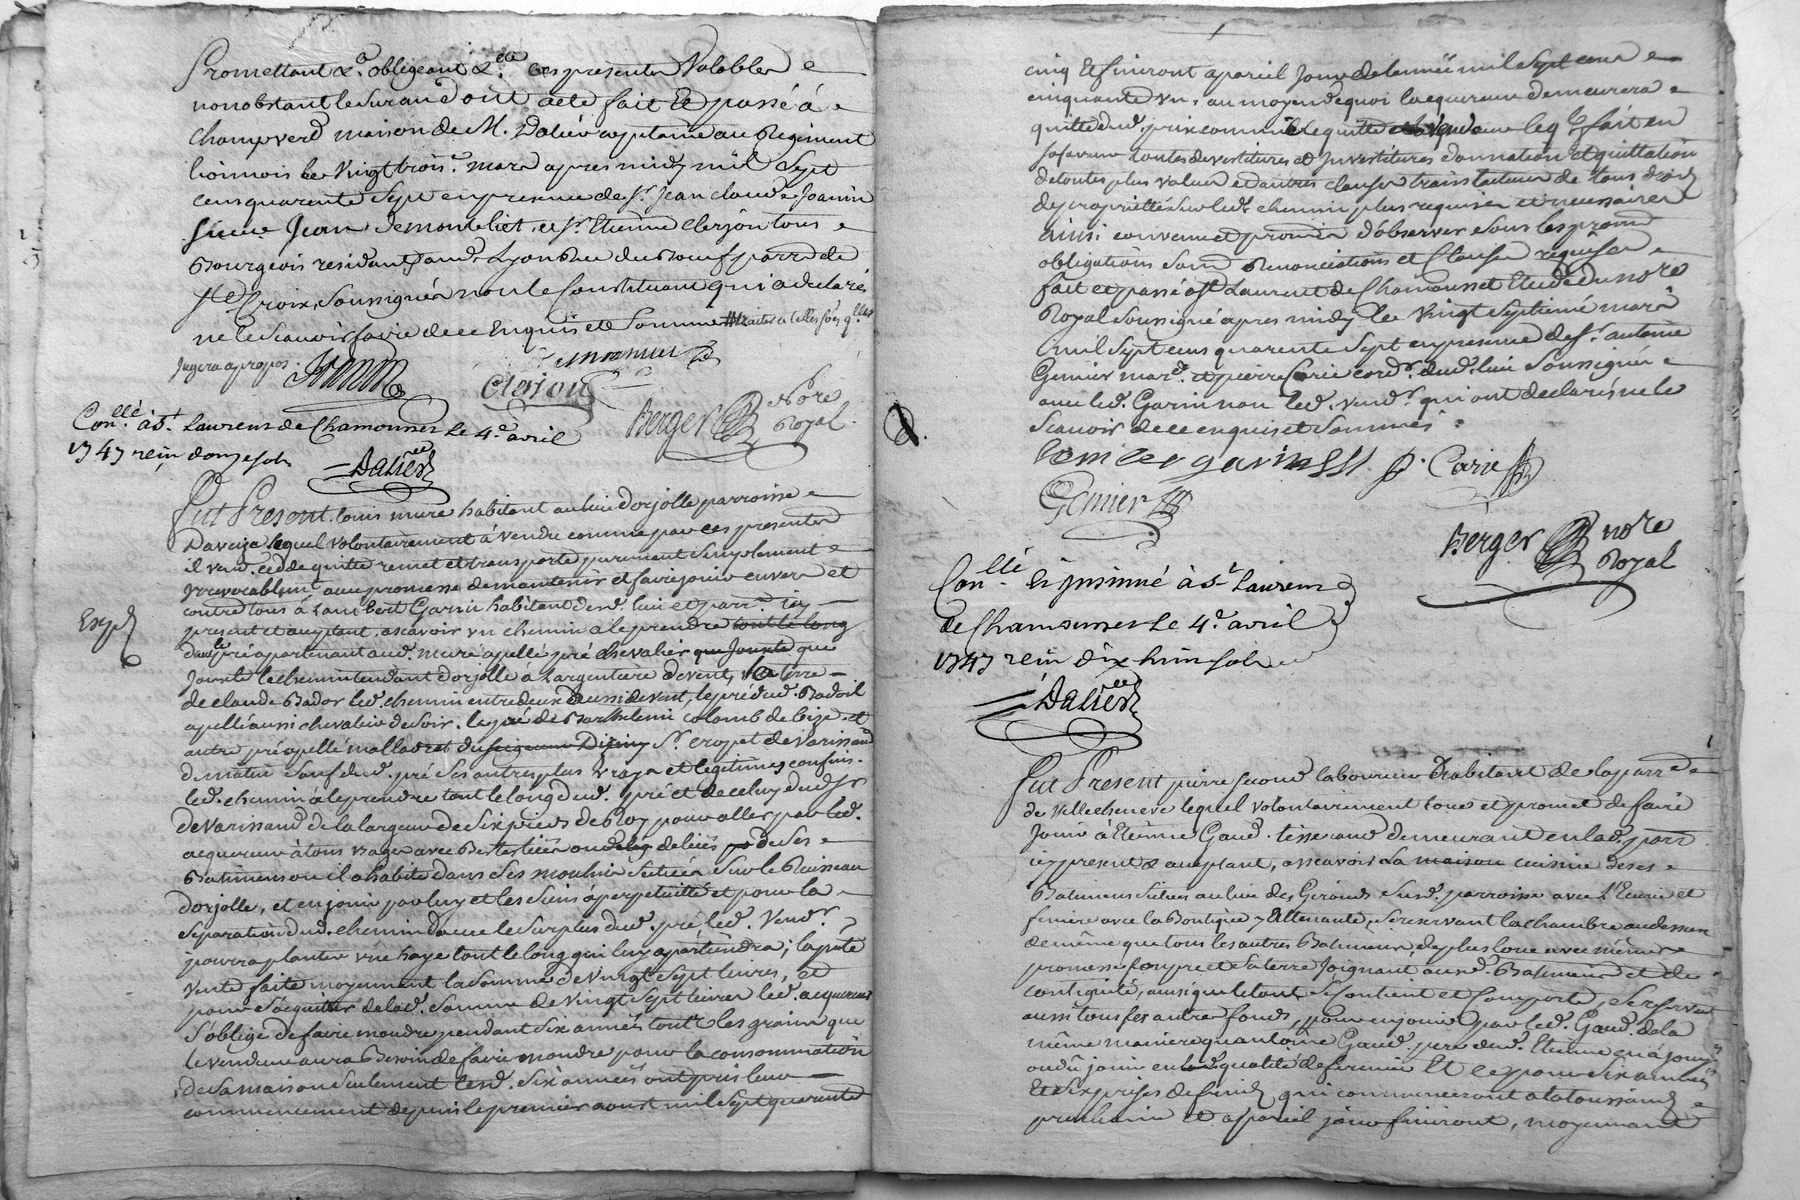 Promettant &c. obligeant &c. les presentes Valables
nonobstant le Surand dont acte fait Et passé à
Champverd maison de M. Daliés capitaine au Regiment
lionnois le Vingt trois.e mars apres midy mil Sept
cens quarente Sept en presence de S.r Jean claude Joanin
Sieur Jean Demontchet, et S.r Etienne Clerjon tous
Bourgeois residants aud. Lyon Rue du Boeuf parr. de
S.te Croix, Soussignés non le Constituant qui a declaré
ne le Scavoir faire de ce Enquis et Sommé traiter a telles Soes q.lles
Jugera a propos.
Clerjon
Berger No.re
Royal
Con.llé à S.t Laurens de Chamousset Le 4.e avril
1747 reçu douze sols
Daliés
Fut Present Louis mure habitant au lieu dorjolle parroisse
Daveize lequel volontairement à vendu comme par ces presentes
il vend, cede quitte remet et transporte purement Simplement
Yrrevocablem.t avec promesse de maintenir et faire jouir envers et
contre tous à Lambert Garin habitant dud. lieu et parr.e icy
present et acceptant, ascavoir un chemin à le prendre tout le long
dans le pré apartenant aud. mure apellé pré chevalier que Jouxte que
Jouxte le chemin tendant dorjolle à Largentiere de vent, la terre
de claude Bador led. chemin entredeux aussi de vent, le pré dud. Badoil
apellé aussi chevalier de Soir. le pré de Barthelemi colomb de bize, et
autre pré apellé malladret du Seigneur S.r cropet de Varissand
de matin Sauf dud. pré Ses autres plus Vrays et legitimes confins.
led. chemin à le prendre tout le long dud. pré et de celuy dud. S.r
de Varissand de la largeur de Six pieds de Roy pour aller par led.
acquereur à tous usages avec Bestes liées ou deliées de Ses
Batimens ou il a habité dans Ses moulins Scitués Sur le Ruisseau
dorjolle, et en jouir par luy et les Siens à perpetuité et pour la
Separation dud. chemin Davec le Surplus dud. pré, led. Vend.r
pourra planter une haye tout le long qui luy apartiendra; la pnte
Vente faite moyennant la Somme de Vingt Sept livres, et
pour S'acquitter de lad. Somme de Vingt Sept livres led. acquereur
S'oblige de faire moudre pendant Six années tout les grains que
le vendeur aura Besoin de faire moudre pour la consommation
de Sa maison Seulement lesd. Six années ont pris leur
commencement depuis le premier aoust mil Sept quarente
Exp.d
cinq Et finiront a pareil Jour de lannée mil Sept cens
cinquante un, au moyen de quoi lacquereur demeurera
quitte dud. prix comme il le quitte leq.l fait en
Sa faveur toutes devestitures et Investitures donnation et quittation
de toutes plus values et autres clauses translatives de tous droits
de proprietté Sur led. chemin plus requises et necessaires
Ainsi convenu et promis d'observer Sous les prom.
obligations Soum. Renonciations et Clauses requises
fait et passé a St. Laurent de Chamousset Etude du No.re
Royal Soussigné apres midy le Vingt Septieme mars
mil Sept cens quarente Sept en presence de S.r antoine
Genier mar.d et pierre Carie cord.r dud. lieu Soussignés
avec led. Garin non led. vend.r qui ont declaré ne le
Scavoir de ce enquis et Sommés.
lembert garin
p. Carie
Genier
Berger no.re
Royal
Con.llé Et insinué à S.t Laurens
de Chamousset Le 4.e avril
1747 reçu dix huit sols
Daliés
Fut Present pierre laboureur habitant de la parr.e
de Villecheneve lequel volontairement loue et promet de faire
Jouir à Etienne Gaud. tisserand demeurant en lad. parr.
icy present & acceptant, ascavoir La maison cuisine de Ses
Batimens Scitués au lieu des Girauds Susd. parroisse avec l'Ecurie et
feniere avec la Boutique y Attenante, Se reservant la chambre au dessus
de même que tous les autres Batimens, de plus loue avec même
promesse Son pré et Sa terre Joignant ausd. Batimens et de
contiguité, ainsi que le tout Se contient et Comporte, Se reservant
aussi tous Ses autres fonds, pour en jouir par led. Gaud. de la
même maniere qu'antoine Gaud. pere dud. Etienne en à jouy
ou dû jouir en qualité de fermier Et ce pour Six années
Et Six prises de fruits, qui commenceront a la toussaints
prochaine et a pareil jour finiront, moyennant